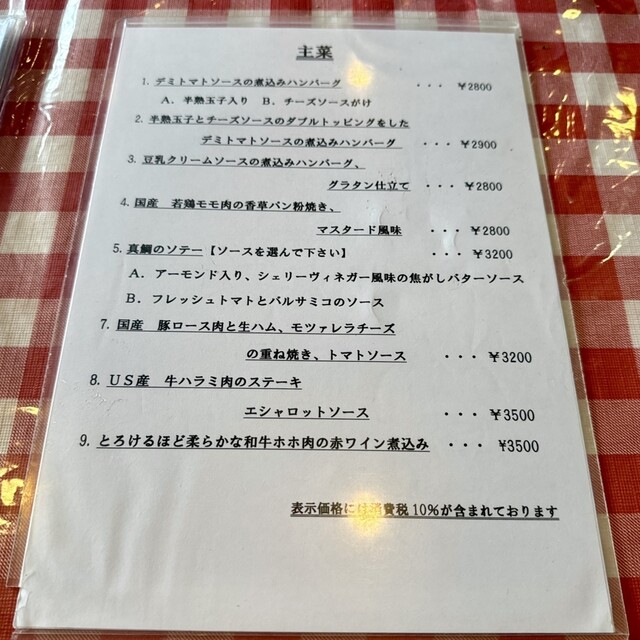 主菜
1. デミトマトソースの煮込みハンバーグ ・・・ ¥2800
A. 半熟玉子入り B. チーズソースがけ
2. 半熟玉子とチーズソースのダブルトッピングをした
デミトマトソースの煮込みハンバーグ ・・・ ¥2900
3. 豆乳クリームソースの煮込みハンバーグ、
グラタン仕立て ・・・ ¥2800
4. 国産 若鶏モモ肉の香草パン粉焼き、
マスタード風味 ・・・ ¥2800
5. 真鯛のソテー【ソースを選んで下さい】 ・・・ ¥3200
A. アーモンド入り、シェリーヴィネガー風味の焦がしバターソース
B. フレッシュトマトとバルサミコのソース
7. 国産 豚ロース肉と生ハム、モツァレラチーズ
の重ね焼き、トマトソース ・・・ ¥3200
8. US産 牛ハラミ肉のステーキ
エシャロットソース ・・・ ¥3500
9. とろけるほど柔らかな和牛ホホ肉の赤ワイン煮込み ・・・ ¥3500
表示価格には消費税10%が含まれております